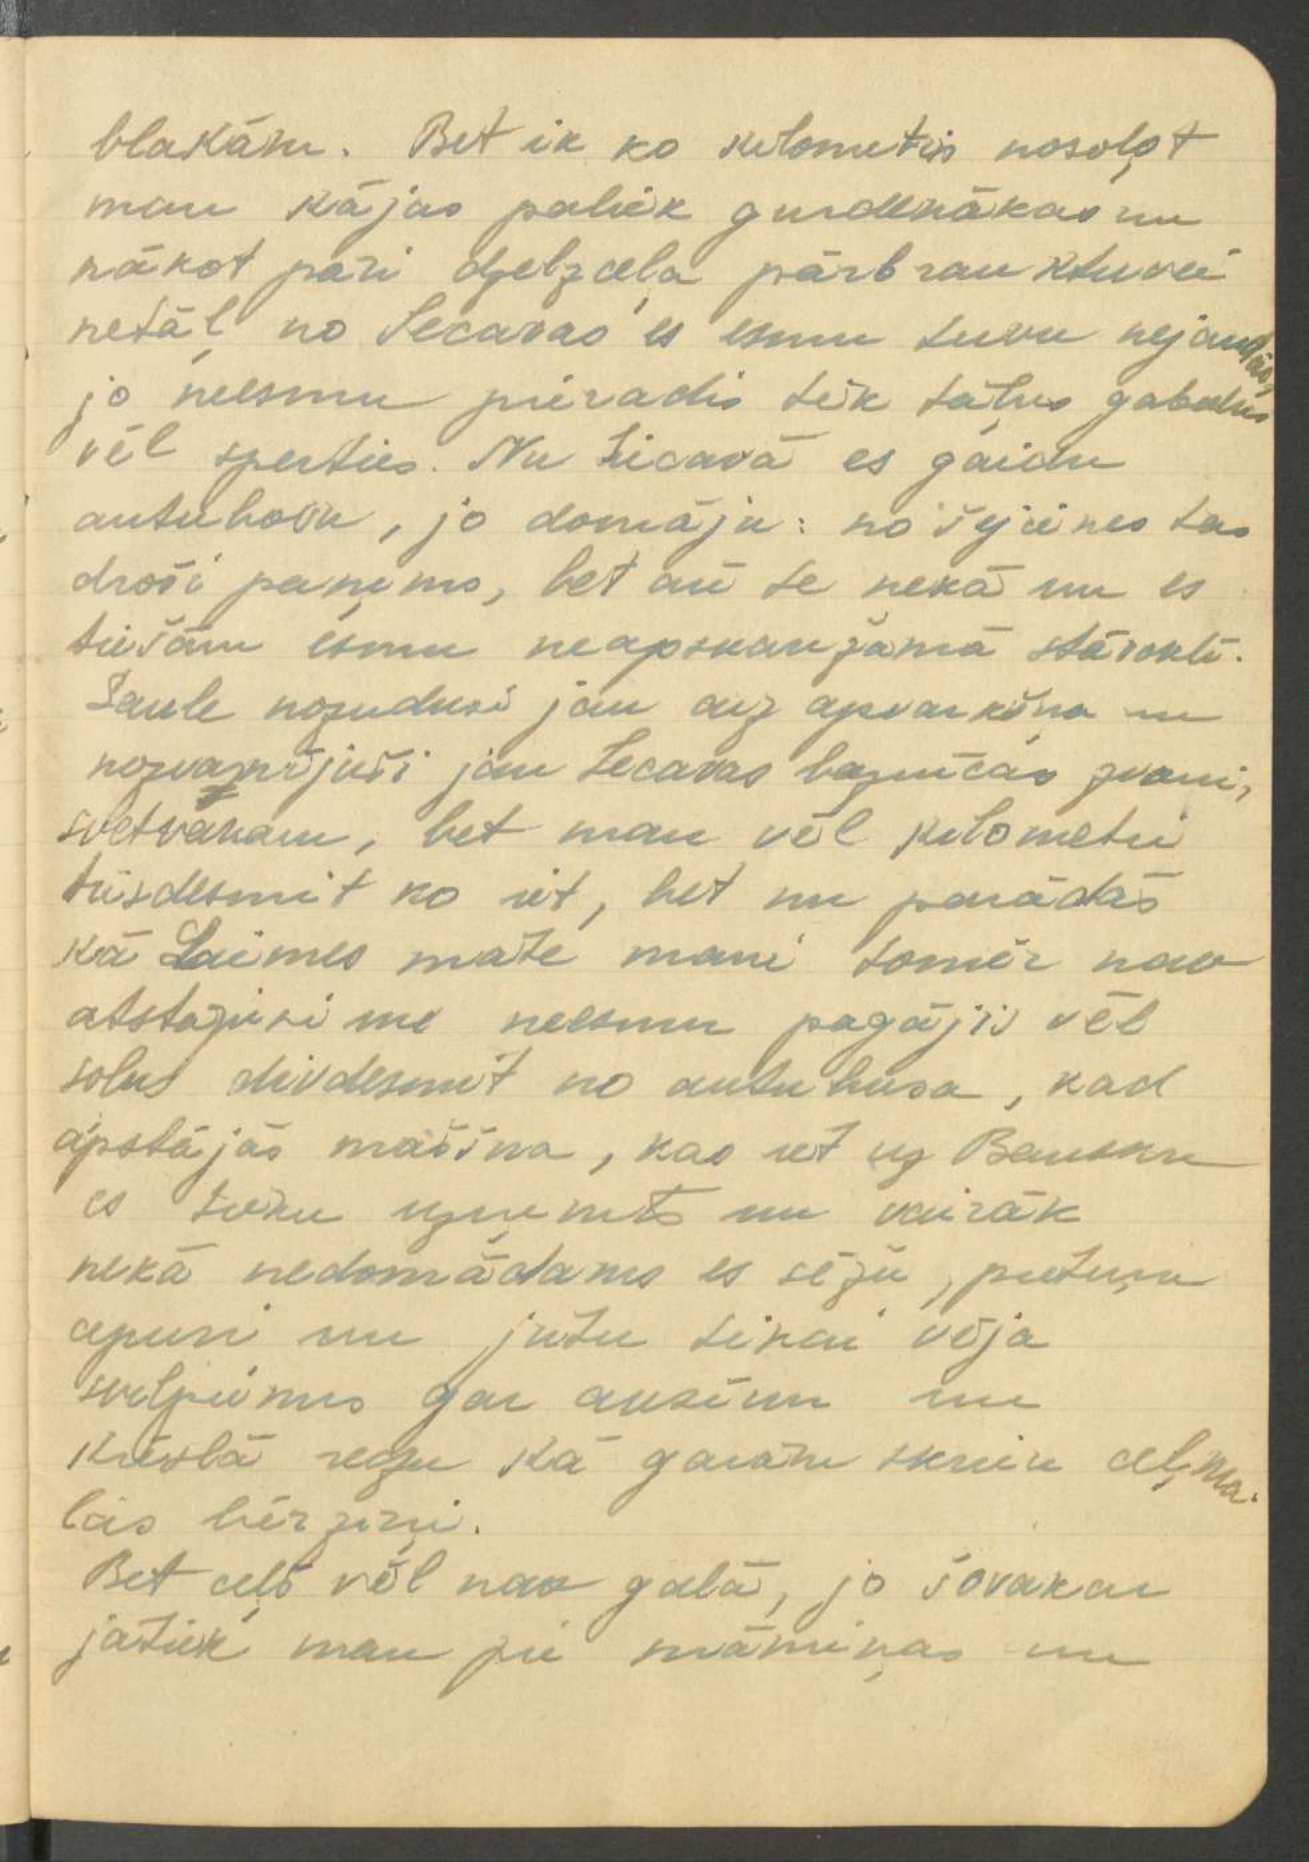 blakām. Bet ik ko kilometris nosoļot
man kājas paliek gurdenākas un
nākot pāri dzelzceļa pārbrauktuvei
netāļ no Iecavas es esmu tuvu nejaušās,
jo neesmu pieradis tik tāļus gabalus
vēl sperties. Nu Iecavā es gaidu
autubosu, jo domāju: no šejienes tas
droši paņems, bet arī te nekā un es
tiešām esmu neapskaužamā stāvoklī.
Saule nozudusi jau aiz apvāršņa un
nozvanījuši jau Iecavas baznīcas zvani,
svētvakaru, bet man vēl kilometri
trīsdesmit ko iet, bet nu parādās
ka Laimes māte mani tomēr nav
atstājusi ne neesmu pagājis vēl
soļus divdesmit no autubusa, kad
apstājās mašīna, kas iet uz Bausku
es tieku uzņemts un vairāk
nekā nedomādams es sēžu, putekļu
apuri un jūtu tikai vēja
svilpienus gar ausīm un
krēslā redzu kā garām skrien ceļma-
las bērziņi.
Bet ceļš vēl nav galā, jo šovakar
jātiek man pie māmiņas un